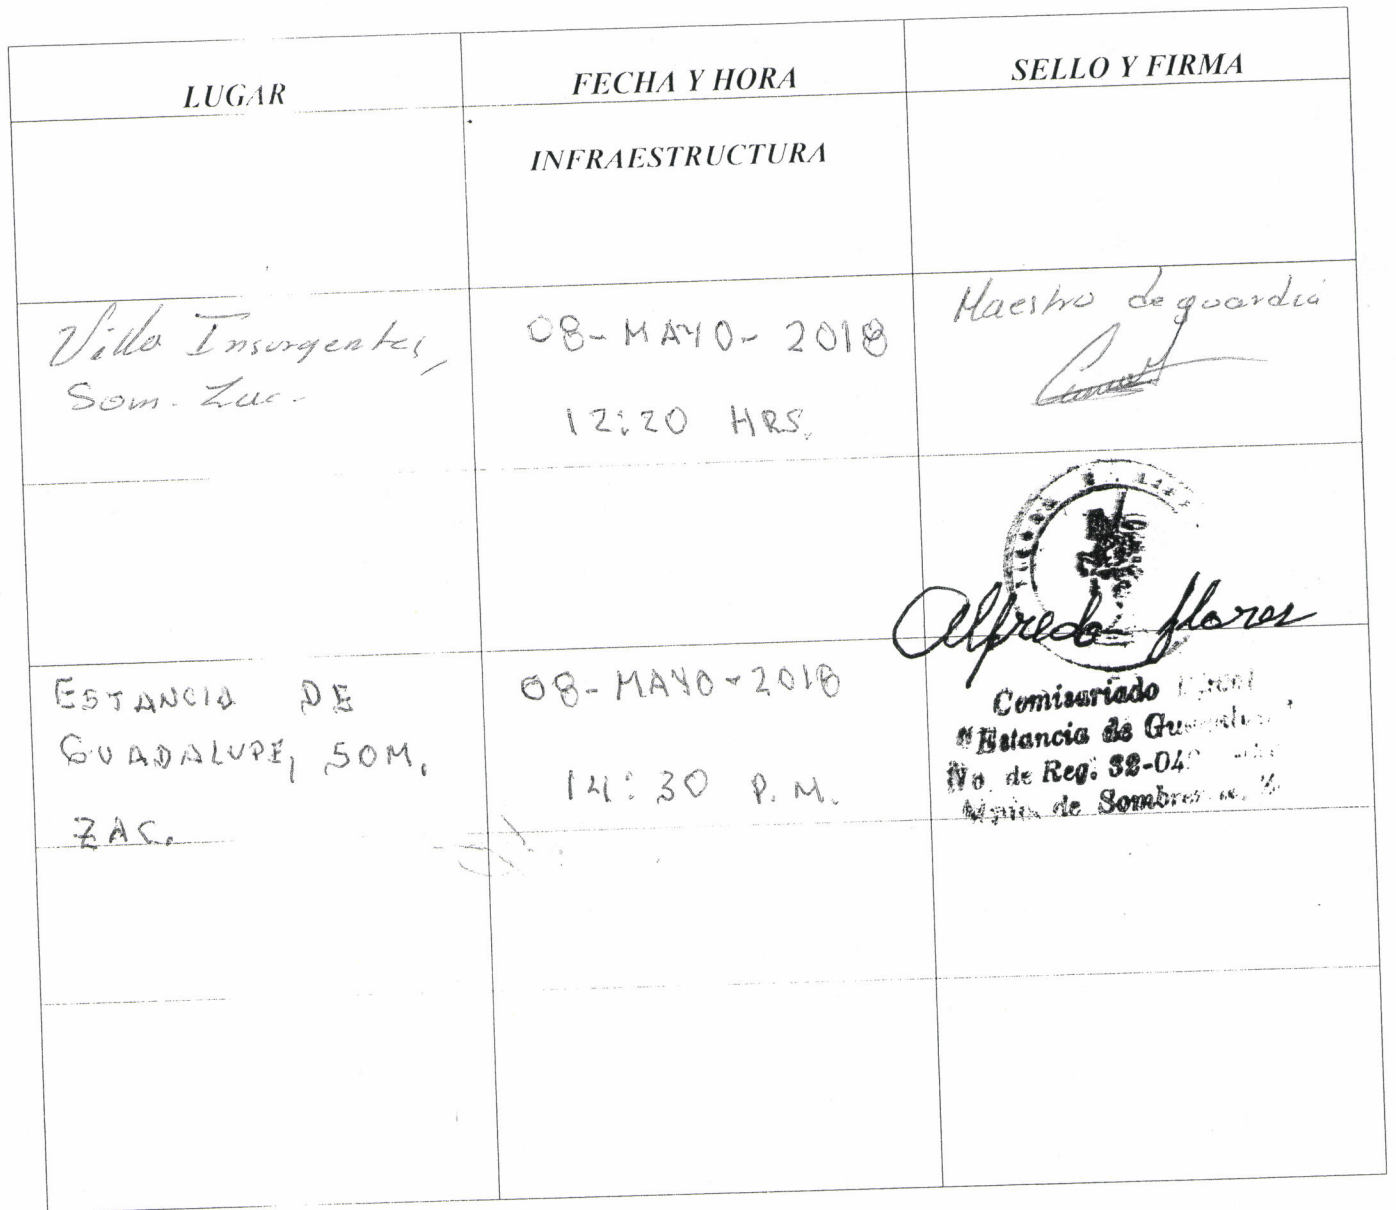 LUGAR
FECHA Y HORA
SELLO Y FIRMA
INFRAESTRUCTURA
Villa Insurgentes,
Som. Zac.
08-MAYO-2018
12:20 HRS.
Maestro de guardia
Alfredo flores
ESTANCIA DE
GUADALUPE, SOM.
ZAC.
08-MAYO-2018
14:30 P.M.
Comisariado
"Estancia de
No. de Reg. 32-04
de